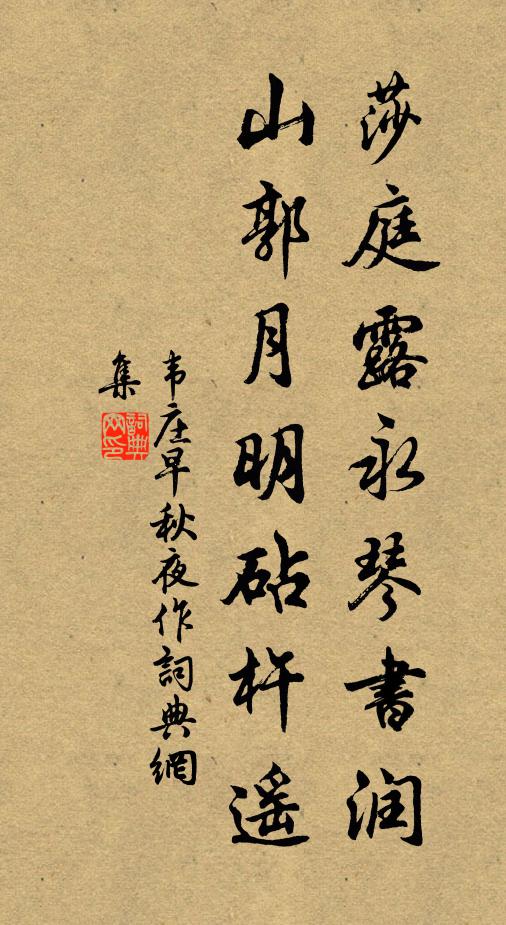 莎庭露永琴书润
山郭月明砧杵遥
韦庄早秋夜作詞典網
集
詞典网印